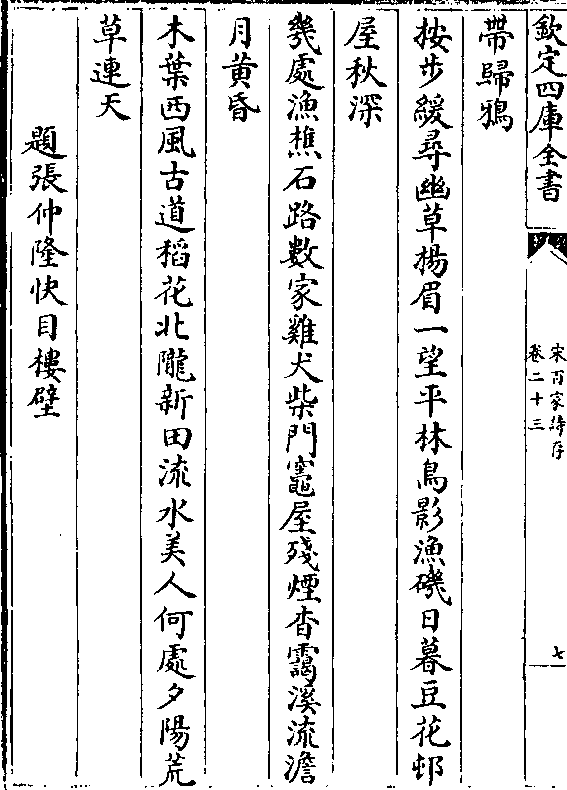 欽定四庫全書
宋百家詩存
卷二十三
七
帶歸鴉
按步緩尋幽草揚眉一望平林鳥影漁磯日暮豆花邨
屋秋深
幾處漁樵石路數家雞犬柴門竈屋殘煙杳靄溪流澹
月黃昏
木葉西風古道稻花北隴新田流水美人何處夕陽荒
草連天
題張仲隆快目樓壁